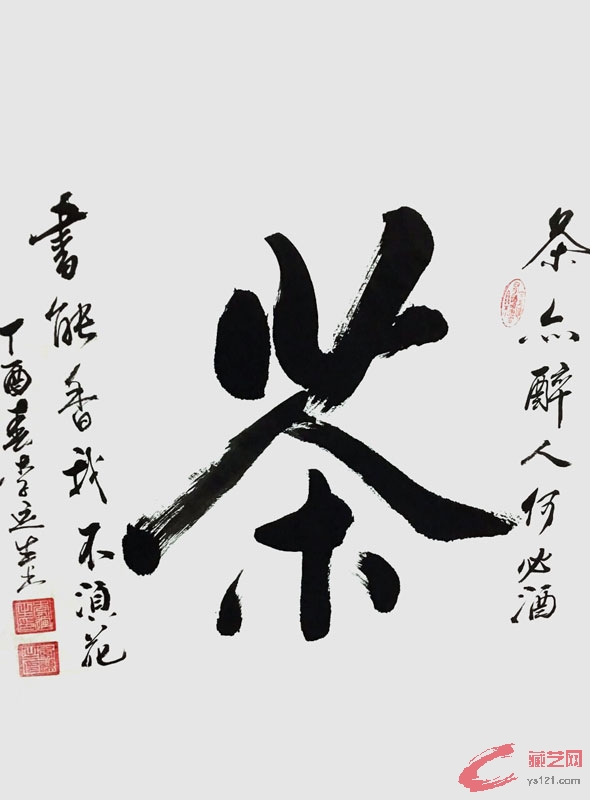 茶亦醉人何必酒
茶
書能香我不湏花
丁酉春
藏艺网
ys121.com